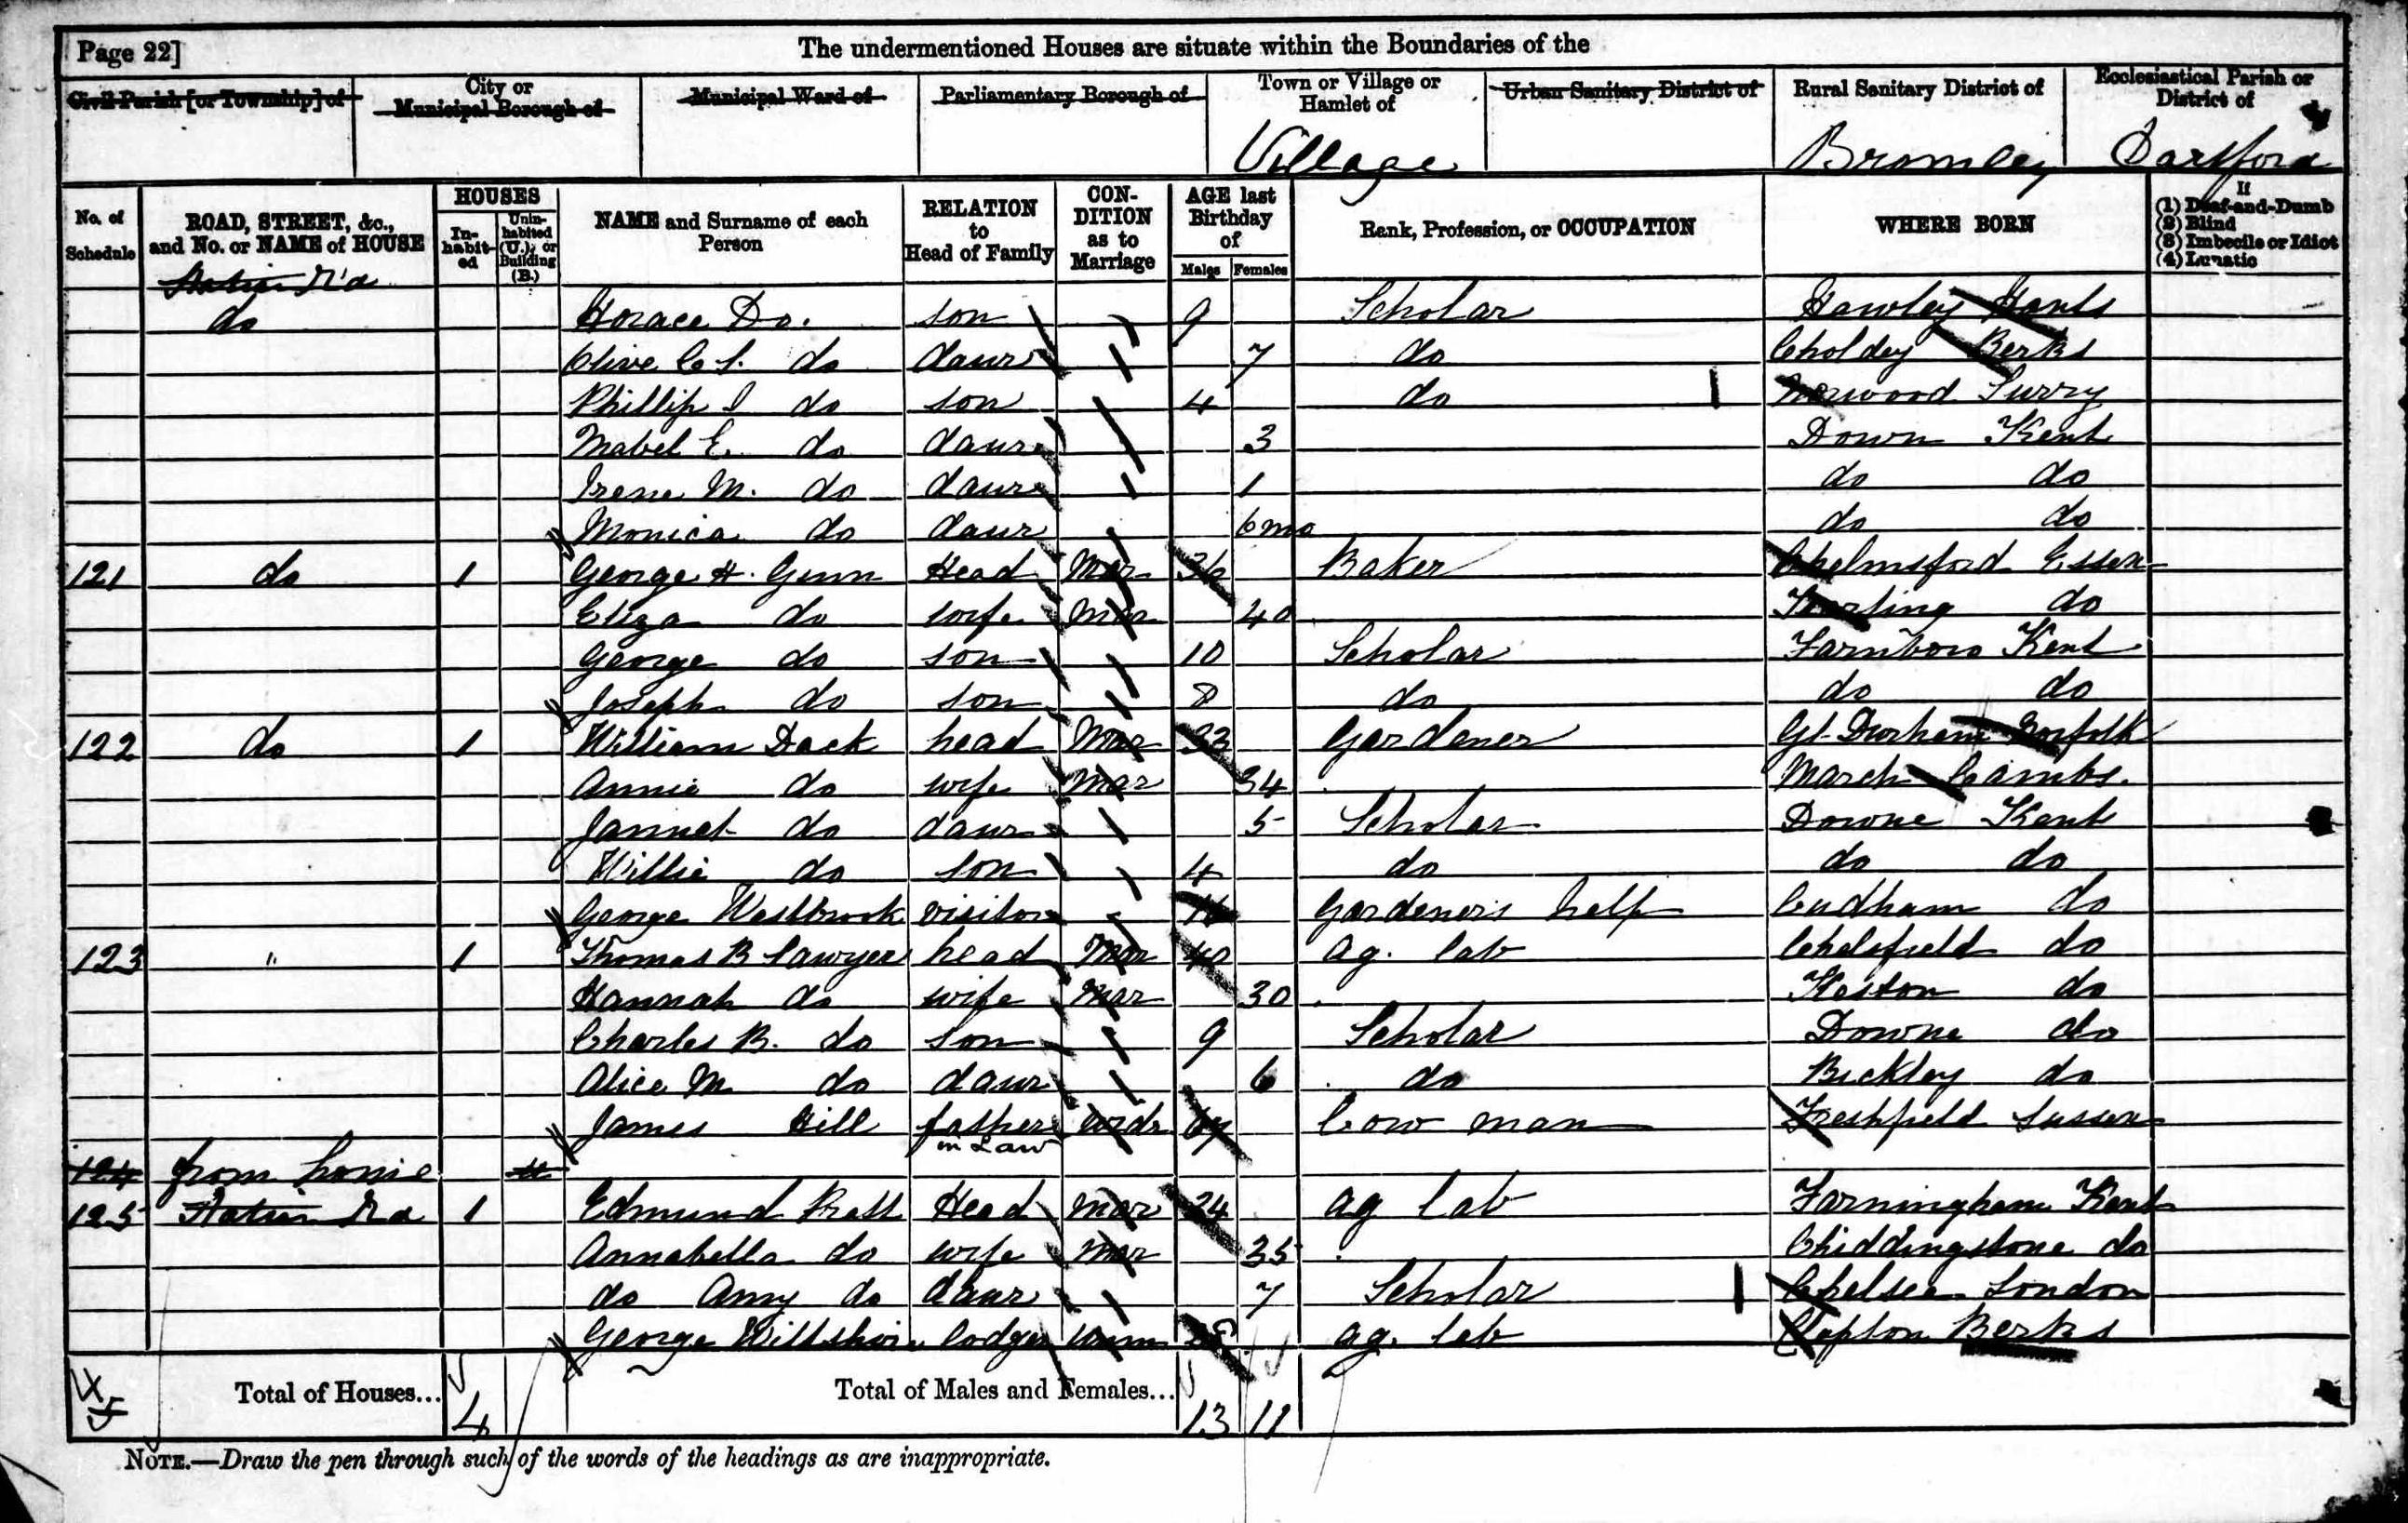 Page 22]
The undermentioned Houses are situate within the Boundaries of the
Civil Parish [or Township] of
City or Municipal Borough of
Municipal Ward of
Parliamentary Borough of
Town or Village or Hamlet of
Urban Sanitary District of
Rural Sanitary District of
Ecclesiastical Parish or District of
Village Bromley Dartford
No. of Schedule
ROAD, STREET, &c., and No. or NAME of HOUSE
HOUSES
In-habit-ed
Unin-habited (U.), or Building (B.)
NAME and Surname of each Person
RELATION to Head of Family
CON-DITION as to Marriage
AGE last Birthday of
Males Females
Rank, Profession, or OCCUPATION
WHERE BORN
If
(1) Deaf-and-Dumb
(2) Blind
(3) Imbecile or Idiot
(4) Lunatic
Station Rd
do Horace Do. son 9 Scholar Hawley Hants
Olive do daur 7 do Berks
Phillip J do son 4 do Norwood Surry
Mabel E. do daur 3 Down Kent
Irene M. do daur 1 do do
Monica do daur 6mo do do
121 do 1 George H. Gunn Head Mar 36 Baker Chelmsford Essex
Eliza do wife Mar 40 do
George do son 10 Scholar Farnboro Kent
Joseph do son 8 do do do
122 do 1 William Dack head Mar 33 Gardener Gt Norfolk
Annie do wife Mar 34 March Cambs.
Jannet do daur 5 Scholar Downe Kent
Willie do son 4 do do do
George Westbrook visitor Gardeners help Cudham do
123 " 1 Thomas B Sawyer head Mar 40 Ag. lab Chelsfield do
Hannah do wife Mar 30 Keston do
Charles B. do son 9 Scholar Downe do
Alice M do daur 6 do Bickley do
James Hill father in Law widr Cow man Freshfield Sussex
124 from home
125 Station Rd 1 Edmund Head Mar ag lab Farningham Kent
Annabella do wife Mar 35 Chiddingstone do
do Amy do daur 7 Scholar Chelsea London
George Wiltshire lodger unm ag. lab Berks
Total of Houses... 4
Total of Males and Females... 13 11
NOTE.—Draw the pen through such of the words of the headings as are inappropriate.